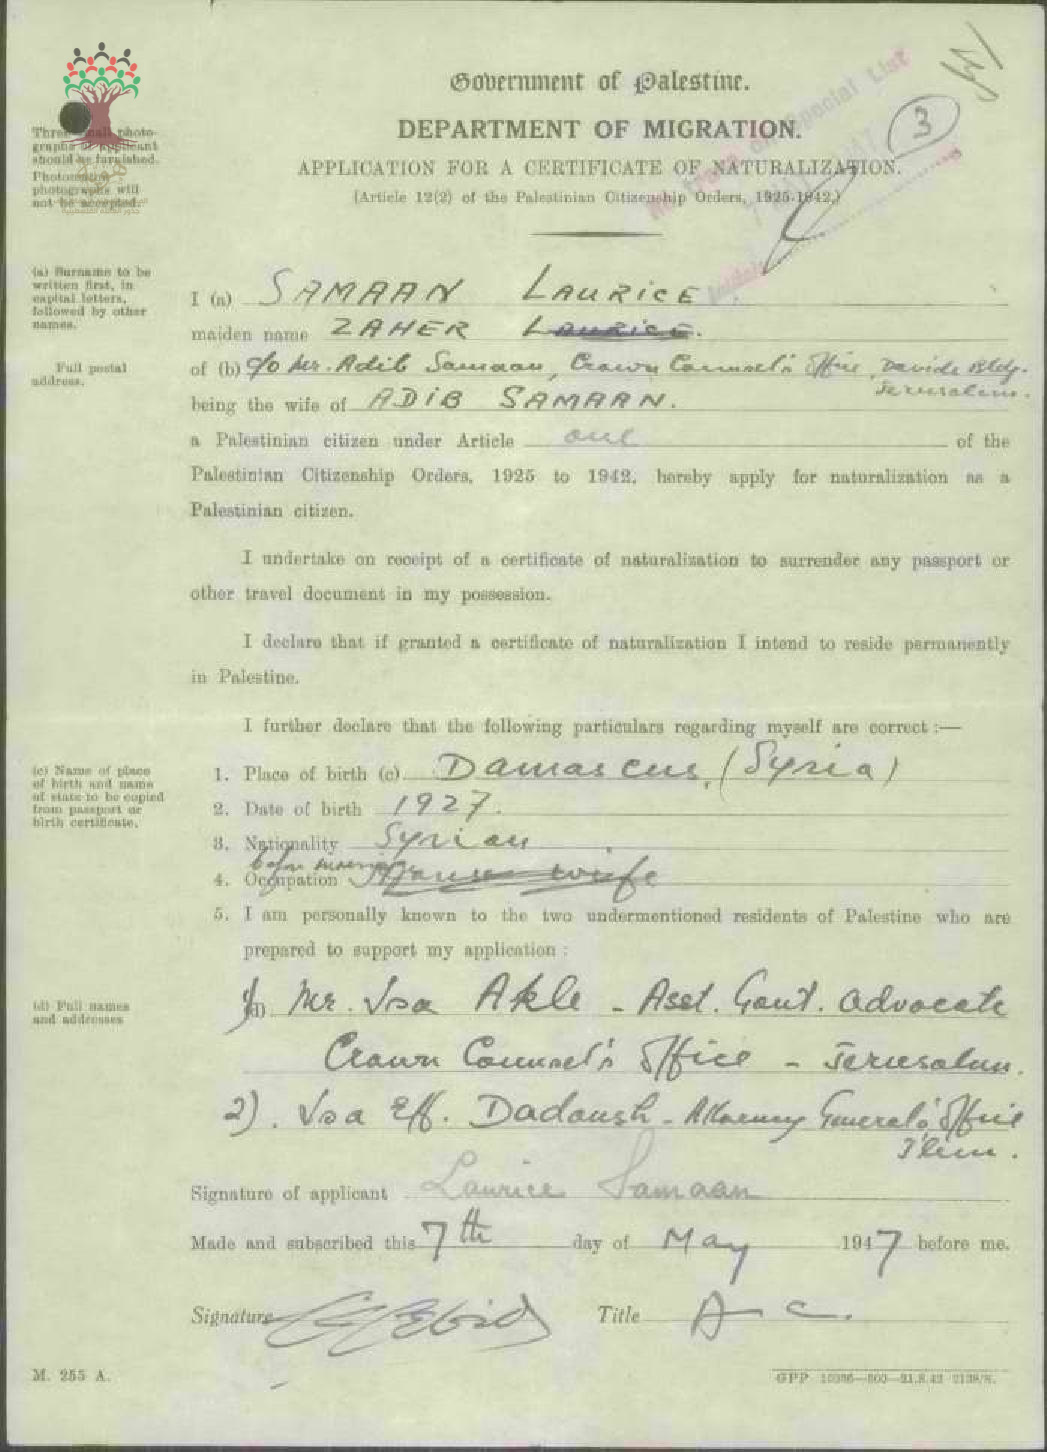 Government of Palestine.
DEPARTMENT OF MIGRATION.
APPLICATION FOR A CERTIFICATE OF NATURALIZATION.
(Article 12(2) of the Palestinian Citizenship Orders, 1925-1942.)
3
Special List
Three small photo-
graphs of applicant
should be furnished.
photographs will
not be accepted.
(a) Surname to be
written first, in
capital letters,
followed by other
names.
I (a) SAMAAN LAURICE
maiden name ZAHER LAURICE.
Full postal
address.
of (b) c/o Mr. Adib Samaan, Crown Counsel's Office, Davids Bldg.
Jerusalem.
being the wife of ADIB SAMAAN.
a Palestinian citizen under Article one of the
Palestinian Citizenship Orders, 1925 to 1942, hereby apply for naturalization as a
Palestinian citizen.
I undertake on receipt of a certificate of naturalization to surrender any passport or
other travel document in my possession.
I declare that if granted a certificate of naturalization I intend to reside permanently
in Palestine.
I further declare that the following particulars regarding myself are correct :—
(c) Name of place
of birth and name
of state to be copied
from passport or
birth certificate.
1. Place of birth (c) Damascus, (Syria)
2. Date of birth 1927.
3. Nationality Syrian
before marriage
4. Occupation House wife
5. I am personally known to the two undermentioned residents of Palestine who are
prepared to support my application :
(d) Full names
and addresses
1) (d) Mr. Issa Akle - Asst. Govt. Advocate
Crown Counsel's Office - Jerusalem.
2). Issa Eff. Dadoush - Attorney General's Office
J'lem.
Signature of applicant Laurice Samaan
Made and subscribed this 7th day of May 1947 before me.
Signature Title A C.
M. 255 A.
GPP 10386—500—21.8.42